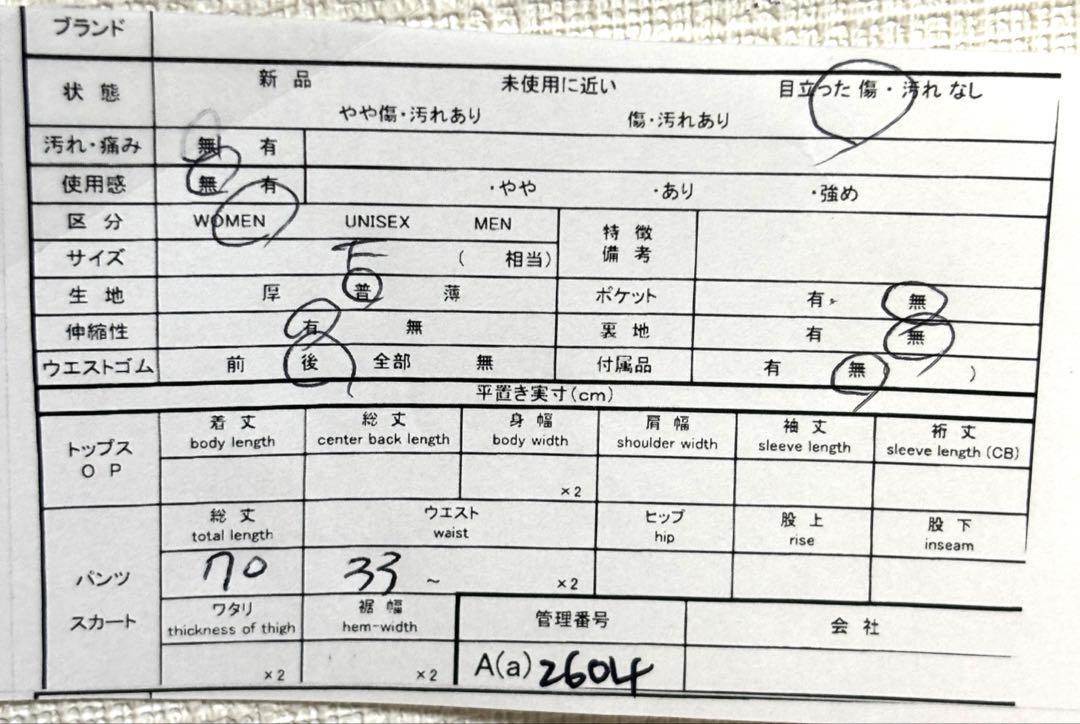 ブランド
状態 新品 未使用に近い 目立った傷・汚れなし
やや傷・汚れあり 傷・汚れあり
汚れ・痛み 無 有
使用感 無 有 ・やや ・あり ・強め
区分 WOMEN UNISEX MEN 特徴
備考
サイズ ( 相当)
生地 厚 普 薄 ポケット 有・ 無
伸縮性 有 無 裏地 有 無
ウエストゴム 前 後 全部 無 付属品 有 無 )
平置き実寸(cm)
トップス
OP
着丈 総丈 身幅 肩幅 袖丈 裄丈
body length center back length body width shoulder width sleeve length sleeve length (CB)
×2
総丈 ウエスト ヒップ 股上 股下
total length waist hip rise inseam
パンツ 70 33 ~ ×2
スカート
ワタリ 裾幅 管理番号 会社
thickness of thigh hem-width
×2 ×2 A(a) 2604